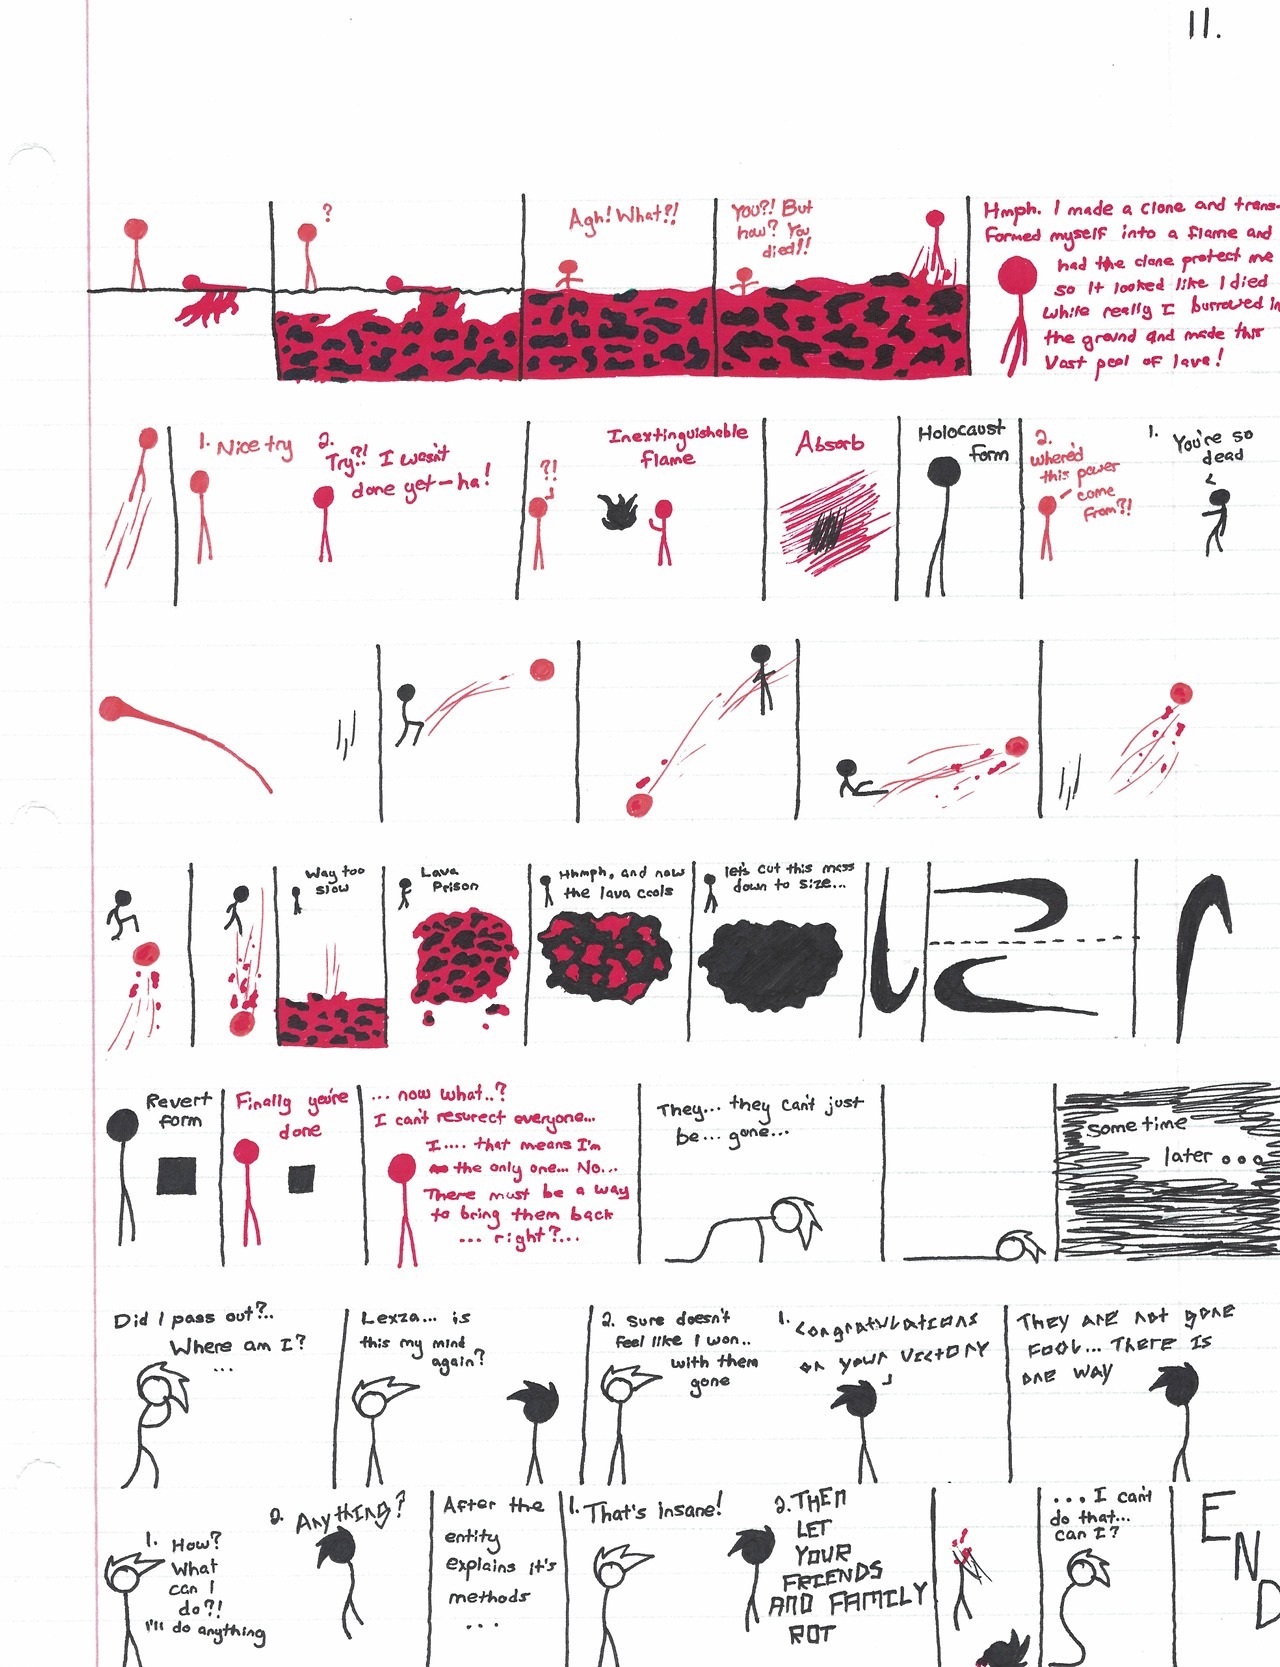 11.
?
Agh! What?!
You?! But
how? You
died!!
Hmph. I made a clone and trans-
formed myself into a flame and
had the clone protect me
so it looked like I died
while really I burrowed in
the ground and made this
Vast pool of lava!
1. Nice try
2.
Try?! I wasn't
done yet-ha!
?!
Inextinguishable
flame
Absorb
Holocaust
form
2.
Where'd
this power
come
from?!
1. You're so
dead
Way too
slow
Lava
Prison
Hhmph, and now
the lava cools
let's cut this mess
down to size...
Revert
form
Finally you're
done
... now what..?
I can't resurect everyone...
I.... that means I'm
the only one... No...
There must be a way
to bring them back
... right?...
They... they can't just
be... gone...
Some time
later ...
Did I pass out?..
Where am I?
...
Lexza... is
this my mind
again?
2. Sure doesn't
feel like I won..
with them
gone
1. Congratulations
on your victory
They are not gone
fool... There is
one way
1. How?
What
can I
do?!
I'll do anything
2. Anything?
After the
entity
explains it's
methods
...
1. That's insane!
2. THEN
LET
YOUR
FRIENDS
AND FAMILY
ROT
... I can't
do that...
can I?
END